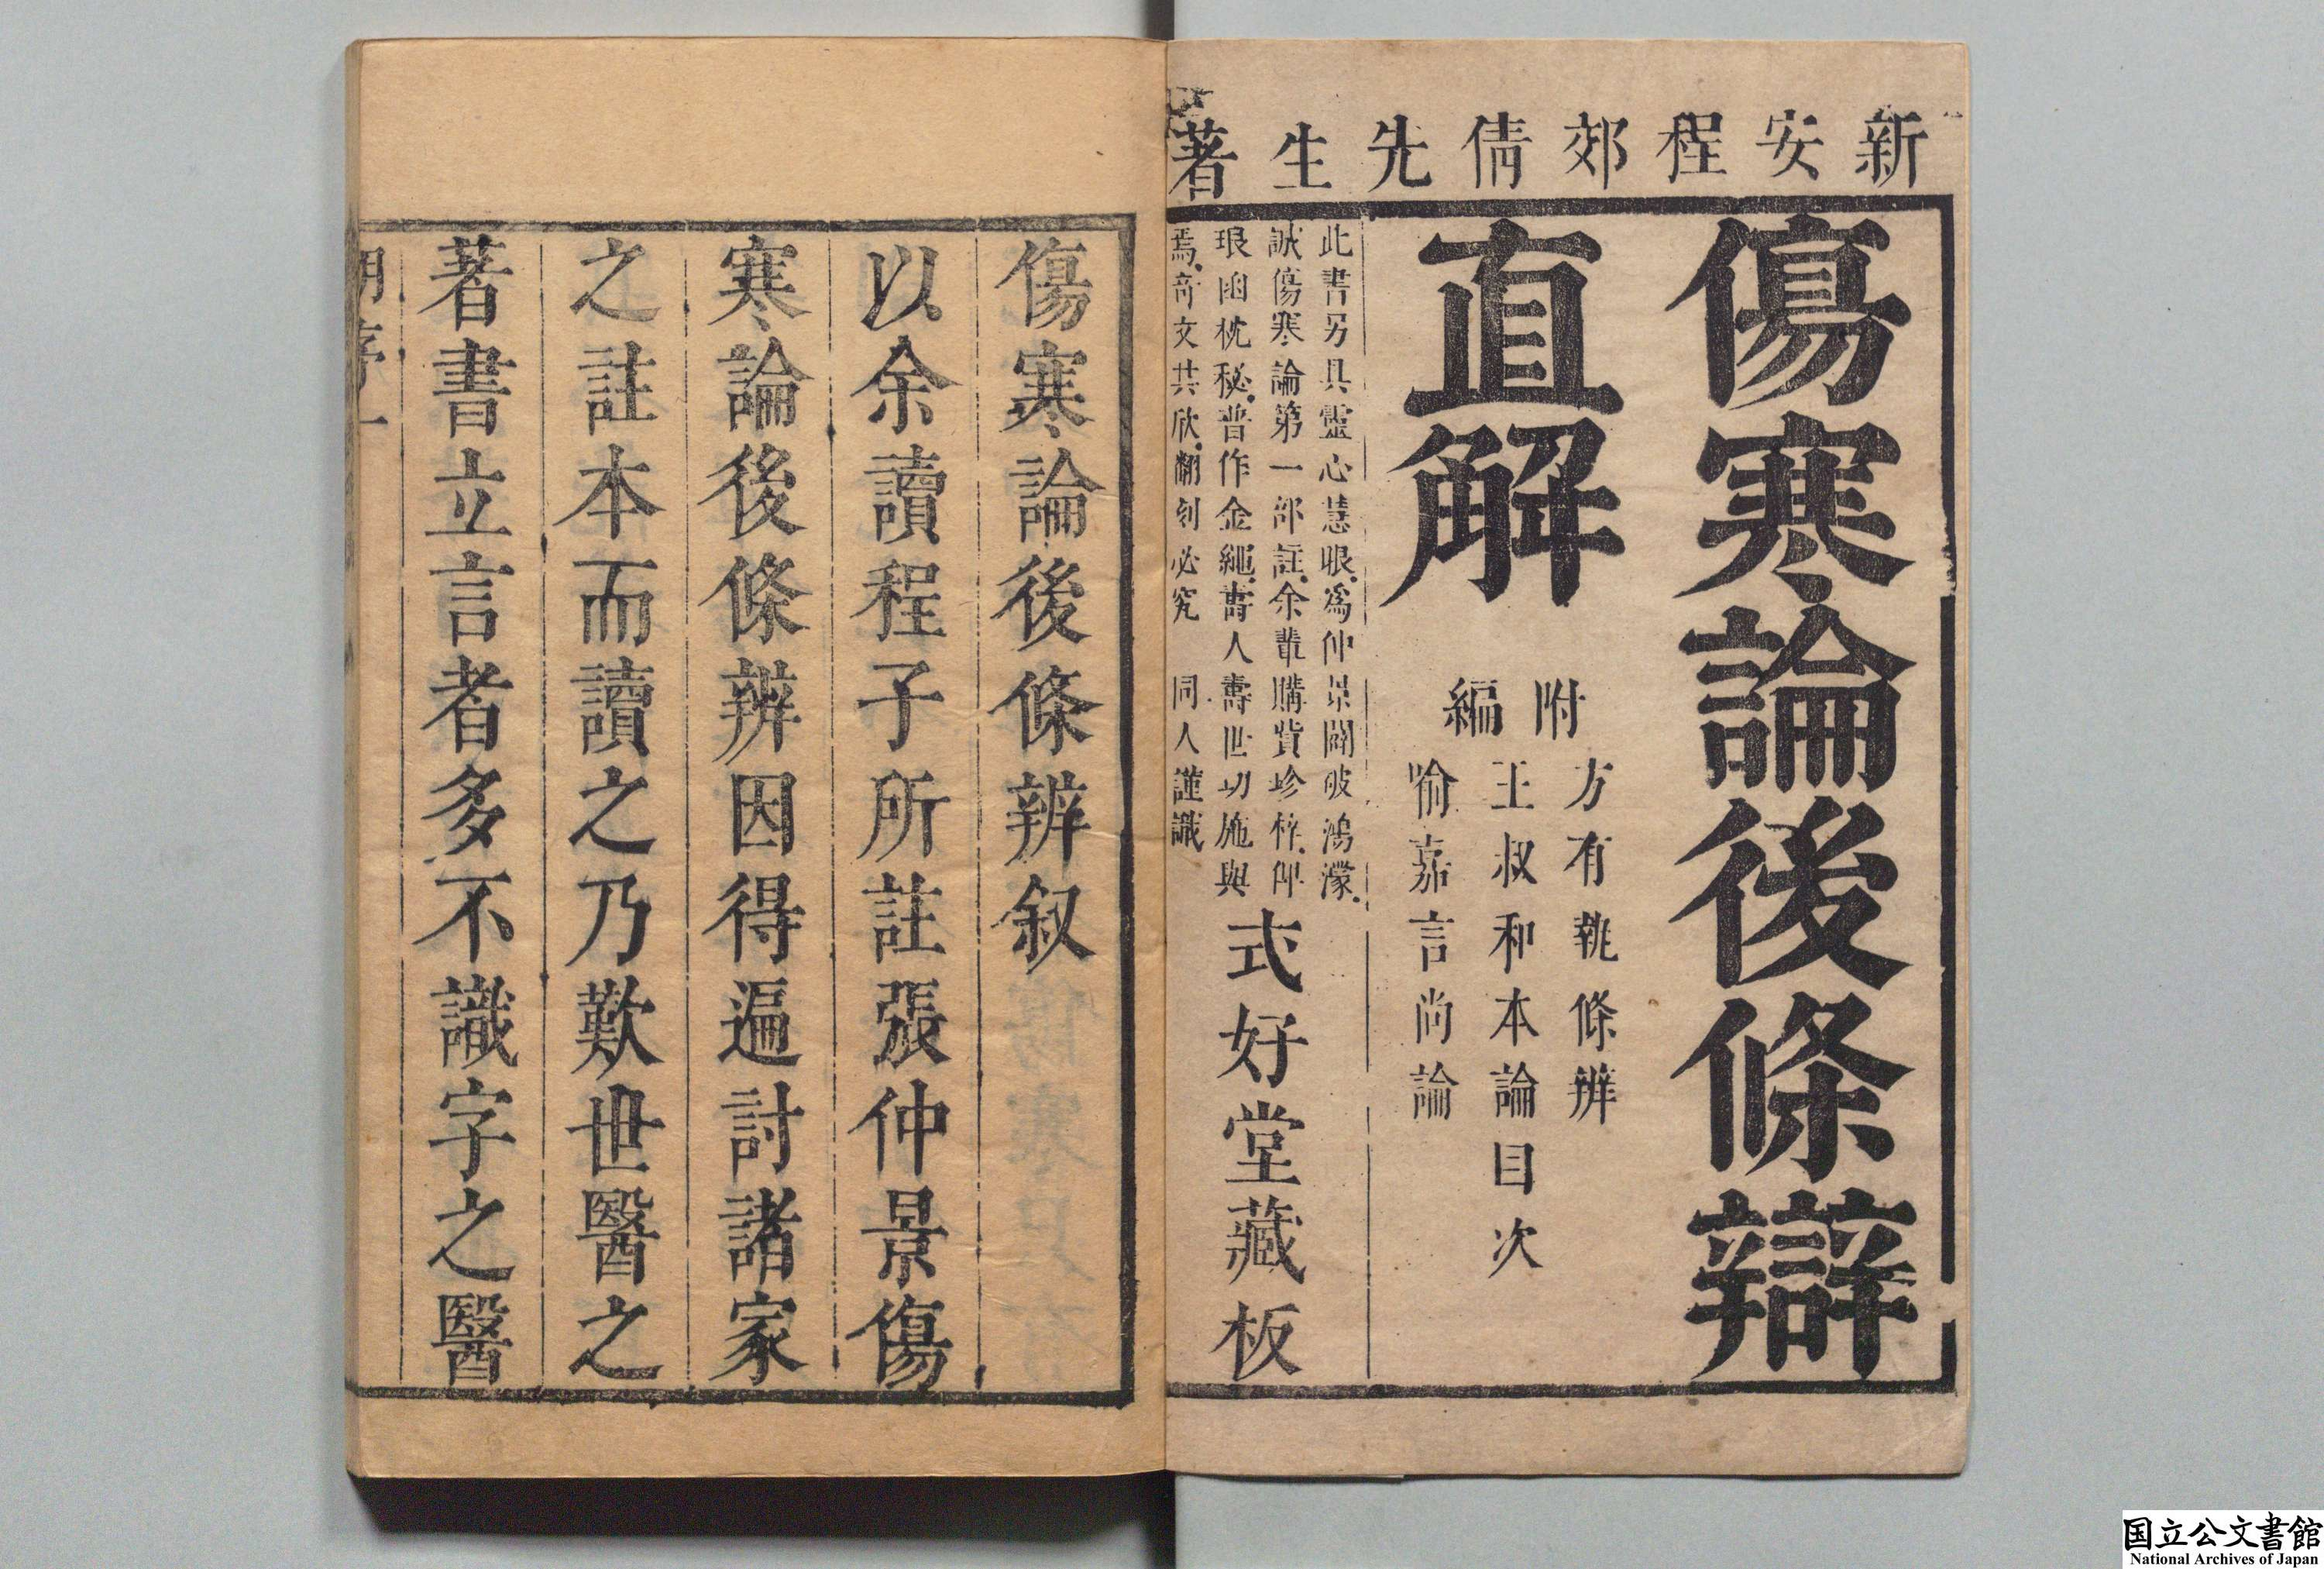 新安程郊倩先生著
傷寒論後條辯
直解
附編
方有執條辨
王叔和本論目次
喻嘉言尚論
此書另具靈心慧眼爲仲景闢破鴻濛
誠傷寒論第一部註余輩購貲珍梓仰
琅函枕秘普作金繩壽人壽世功施與
焉奇文共欣翻刻必究 同人謹識
式好堂藏板
傷寒論後條辨叙
以余讀程子所註張仲景傷
寒論後條辨因得遍討諸家
之註本而讀之乃歎世醫之
著書立言者多不識字之醫
序一
国立公文書館
National Archives of Japan